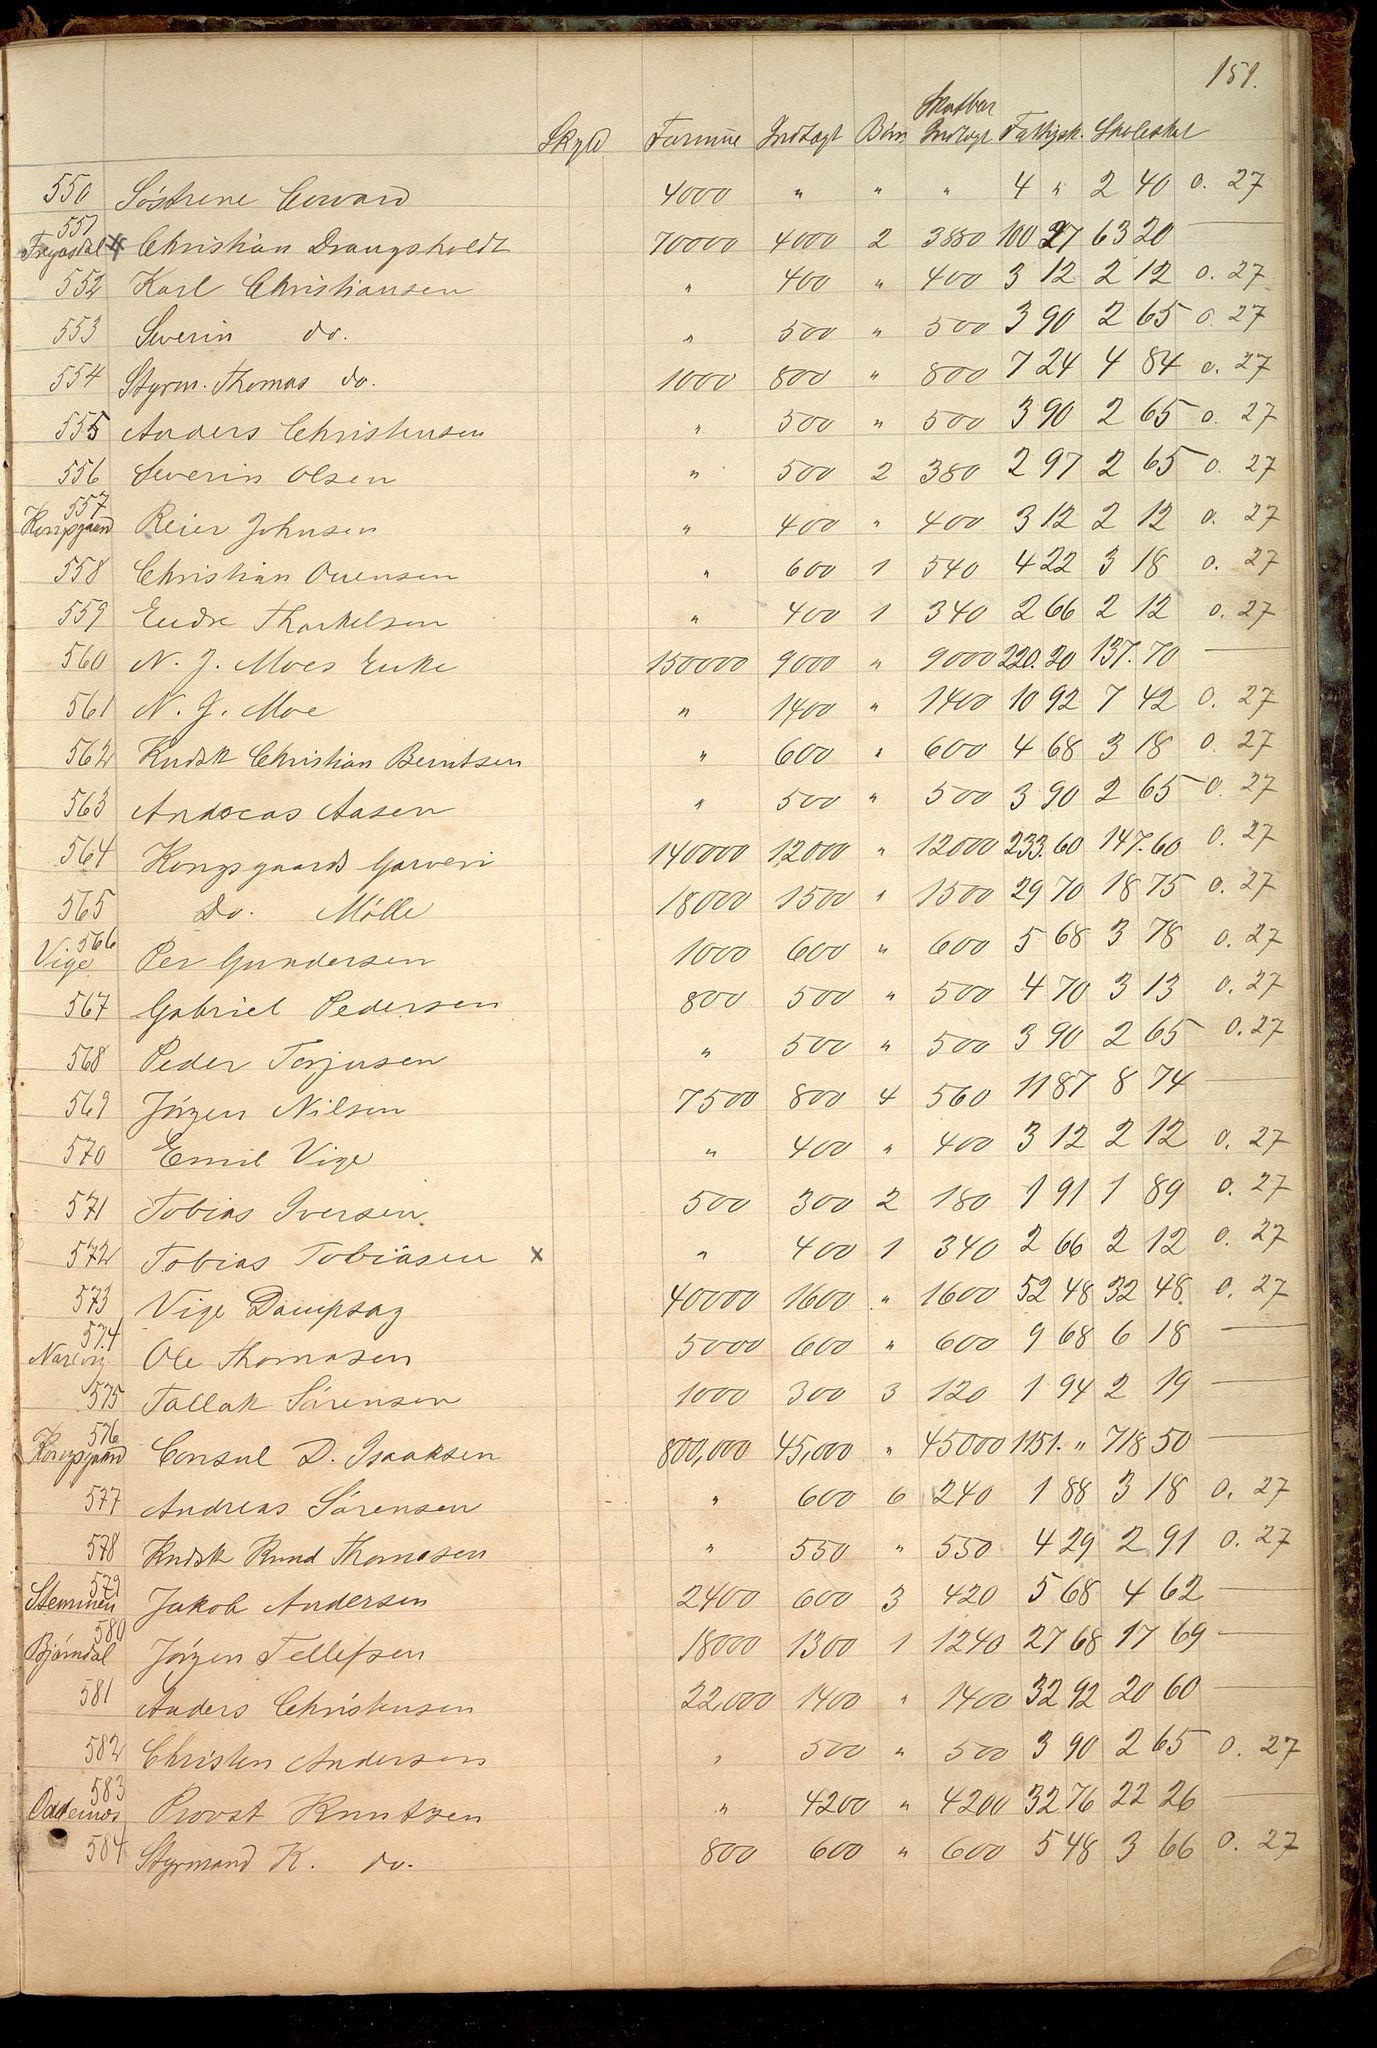 151.
Skyld Formue Indtægt Börn Skatbar Indtægt Fattigsk. Skoleskat
550 Söstrene Coward 4000 " " " 4 " 2 40 0. 27
551 Frijasdal Christian Drangsholdt 70000 4000 2 3880 100 27 63 20 —
552 Karl Christiansen " 400 " 400 3 12 2 12 0. 27
553 Severin do. " 500 " 500 3 90 2 65 0. 27
554 Styrm. Thomas do. 1000 800 " 800 7 24 4 84 0. 27
555 Anders Christensen " 500 " 500 3 90 2 65 0. 27
556 Severin Olsen " 500 2 380 2 97 2 65 0. 27
557 Kongsgaard Reier Johnsen " 400 " 400 3 12 2 12 0. 27
558 Christian Ouensen " 600 1 540 4 22 3 18 0. 27
559 Endre Thorkelsen " 400 1 340 2 66 2 12 0. 27
560 N. J. Moes Enke 150000 9000 " 9000 220. 20 137. 70 —
561 N. J. Moe " 1400 " 1400 10 92 7 42 0. 27
562 Kudsk Christian Berntsen " 600 " 600 4 68 3 18 0. 27
563 Andreas Aasen " 500 " 500 3 90 2 65 0. 27
564 Kongsgaards Garveri 140000 12000 " 12000 233. 60 147. 60 0. 27
565 Do. Mölle 18000 1500 " 1500 29 70 18 75 0. 27
566 Vige Per Gundersen 1000 600 " 600 5 68 3 78 0. 27
567 Gabriel Pedersen 800 500 " 500 4 70 3 13 0. 27
568 Peder Torjusen " 500 " 500 3 90 2 65 0. 27
569 Jörgen Nilsen 7500 800 4 560 11 87 8 74 —
570 Emil Vige " 400 " 400 3 12 2 12 0. 27
571 Tobias Iversen 500 300 2 180 1 91 1 89 0. 27
572 Tobias Tobiasen x " 400 1 340 2 66 2 12 0. 27
573 Vige Dampsag 40000 1600 " 1600 52 48 32 48. 0. 27
574 Narvig Ole Thomasen 5000 600 " 600 9 68 6 18 —
575 Tallak Sörensen 1000 300 3 120 1 94 2 19 —
576 Kongsgaard Consul D. Isaaksen 800,000 45,000 " 45000 1151. " 718 50 —
577 Andreas Sörensen " 600 6 240 1 88 3 18 0. 27
578 Kudsk Knud Thomasen " 550 " 550 4 29 2 91 0. 27
579 Stemmen Jakob Andersen 2400 600 3 420 5 68 4 62 —
580 Bjørndal Jörgen Tellefsen 18000 1300 1 1240 27 68 17 69 —
581 Anders Christensen 22,000 1400 " 1400 32 92 20 60 —
582 Christen Andersen " 500 " 500 3 90 2 65 0. 27
583 Oddernes Provst Knutzen " 4200 " 4200 32 76 22 26 —
584 Styrmand K. do. 800 600 " 600 5 48 3 66 0. 27